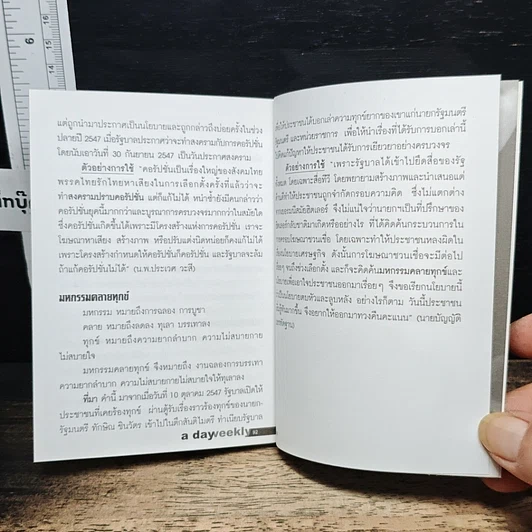 แต่ถูกนำมาประกาศเป็นนโยบายและถูกกล่าวถึงบ่อยครั้งในช่วง
ปลายปี 2547 เมื่อรัฐบาลประกาศว่าจะทำสงครามกับการคอรัปชัน
โดยนับเอาวันที่ 30 กันยายน 2547 เป็นวันประกาศสงคราม
ตัวอย่างการใช้ "คอรัปชันเป็นเรื่องใหญ่ของสังคมไทย
พรรคไทยรักไทยหาเสียงในการเลือกตั้งครั้งที่แล้วว่าจะ
ทำสงครามปราบคอรัปชัน แต่ก็แก้ไม่ได้ หนำซ้ำยังมีคนกล่าวว่า
คอรัปชันยุคนี้มากกว่าและบูรณาการครบวงจรมากกว่าในสมัยใด
ซึ่งคอรัปชันเกิดขึ้นได้เพราะมีโครงสร้างแห่งการคอรัปชัน เราจะ
โฆษณาหาเสียง สร้างภาพ หรือปรับแต่งนิดหน่อยก็คงแก้ไม่ได้
เพราะโครงสร้างกำหนดให้คอรัปชันก็คอรัปชัน และรัฐบาลจะล้ม
ถ้าแก้คอรัปชันไม่ได้" (น.พ.ประเวศ วะสี)
มหกรรมคลายทุกข์
มหกรรม หมายถึงการฉลอง การบูชา
คลาย หมายถึงลดลง ทุเลา บรรเทาลง
ทุกข์ หมายถึงความยากลำบาก ความไม่สบายกาย
ไม่สบายใจ
มหกรรมคลายทุกข์ จึงหมายถึง งานฉลองการบรรเทา
ความยากลำบาก ความไม่สบายกายไม่สบายใจให้ทุเลาลง
ที่มา คำนี้ มาจากเมื่อวันที่ 10 ตุลาคม 2547 รัฐบาลเปิดให้
ประชาชนที่เคยร้องทุกข์ ผ่านตู้รับเรื่องราวร้องทุกข์ของนายก-
รัฐมนตรี ทักษิณ ชินวัตร เข้าไปในตึกสันติไมตรี ทำเนียบรัฐบาล
a dayweekly 82
เพื่อให้ประชาชนได้บอกเล่าความทุกข์ยากของเขาแก่นายกรัฐมนตรี
รัฐมนตรี และหน่วยราชการ เพื่อให้นำเรื่องที่ได้รับการบอกเล่านี้
ไปแก้ปัญหาให้ประชาชนได้รับการเยียวยาอย่างครบวงจร
ตัวอย่างการใช้ "เพราะรัฐบาลได้เข้าไปยึดสื่อของรัฐ
ทั้งหมด โดยเฉพาะสื่อทีวี โดยพยายามสร้างภาพและนำเสนอแต่
ทำให้ประชาชนถูกจำกัดกรอบความคิด ซึ่งไม่แตกต่าง
ฮิตเลอร์ จึงไม่แน่ใจว่านายกฯเป็นที่ปรึกษาของ
กลับชาติมาเกิดหรืออย่างไร ที่ได้คิดค้นกระบวนการใน
การโฆษณาชวนเชื่อ โดยเฉพาะทำให้ประชาชนหลงผิดใน
นโยบายเศรษฐกิจ ดังนั้นการโฆษณาชวนเชื่อจะมีต่อไป
เรื่อยๆ จนถึงช่วงเลือกตั้ง และก็จะคิดค้นมหกรรมคลายทุกข์และ
นโยบายเพื่อเอาใจประชาชนออกมาเรื่อยๆ จึงขอเรียกนโยบายนี้
เป็นนโยบายตบหัวและลูบหลัง อย่างไรก็ตาม วันนี้ประชาชน
รู้ทันมากขึ้น จึงอยากให้ออกมาทวงคืนคะแนน" (นายบัญญัติ
6
16
15
14